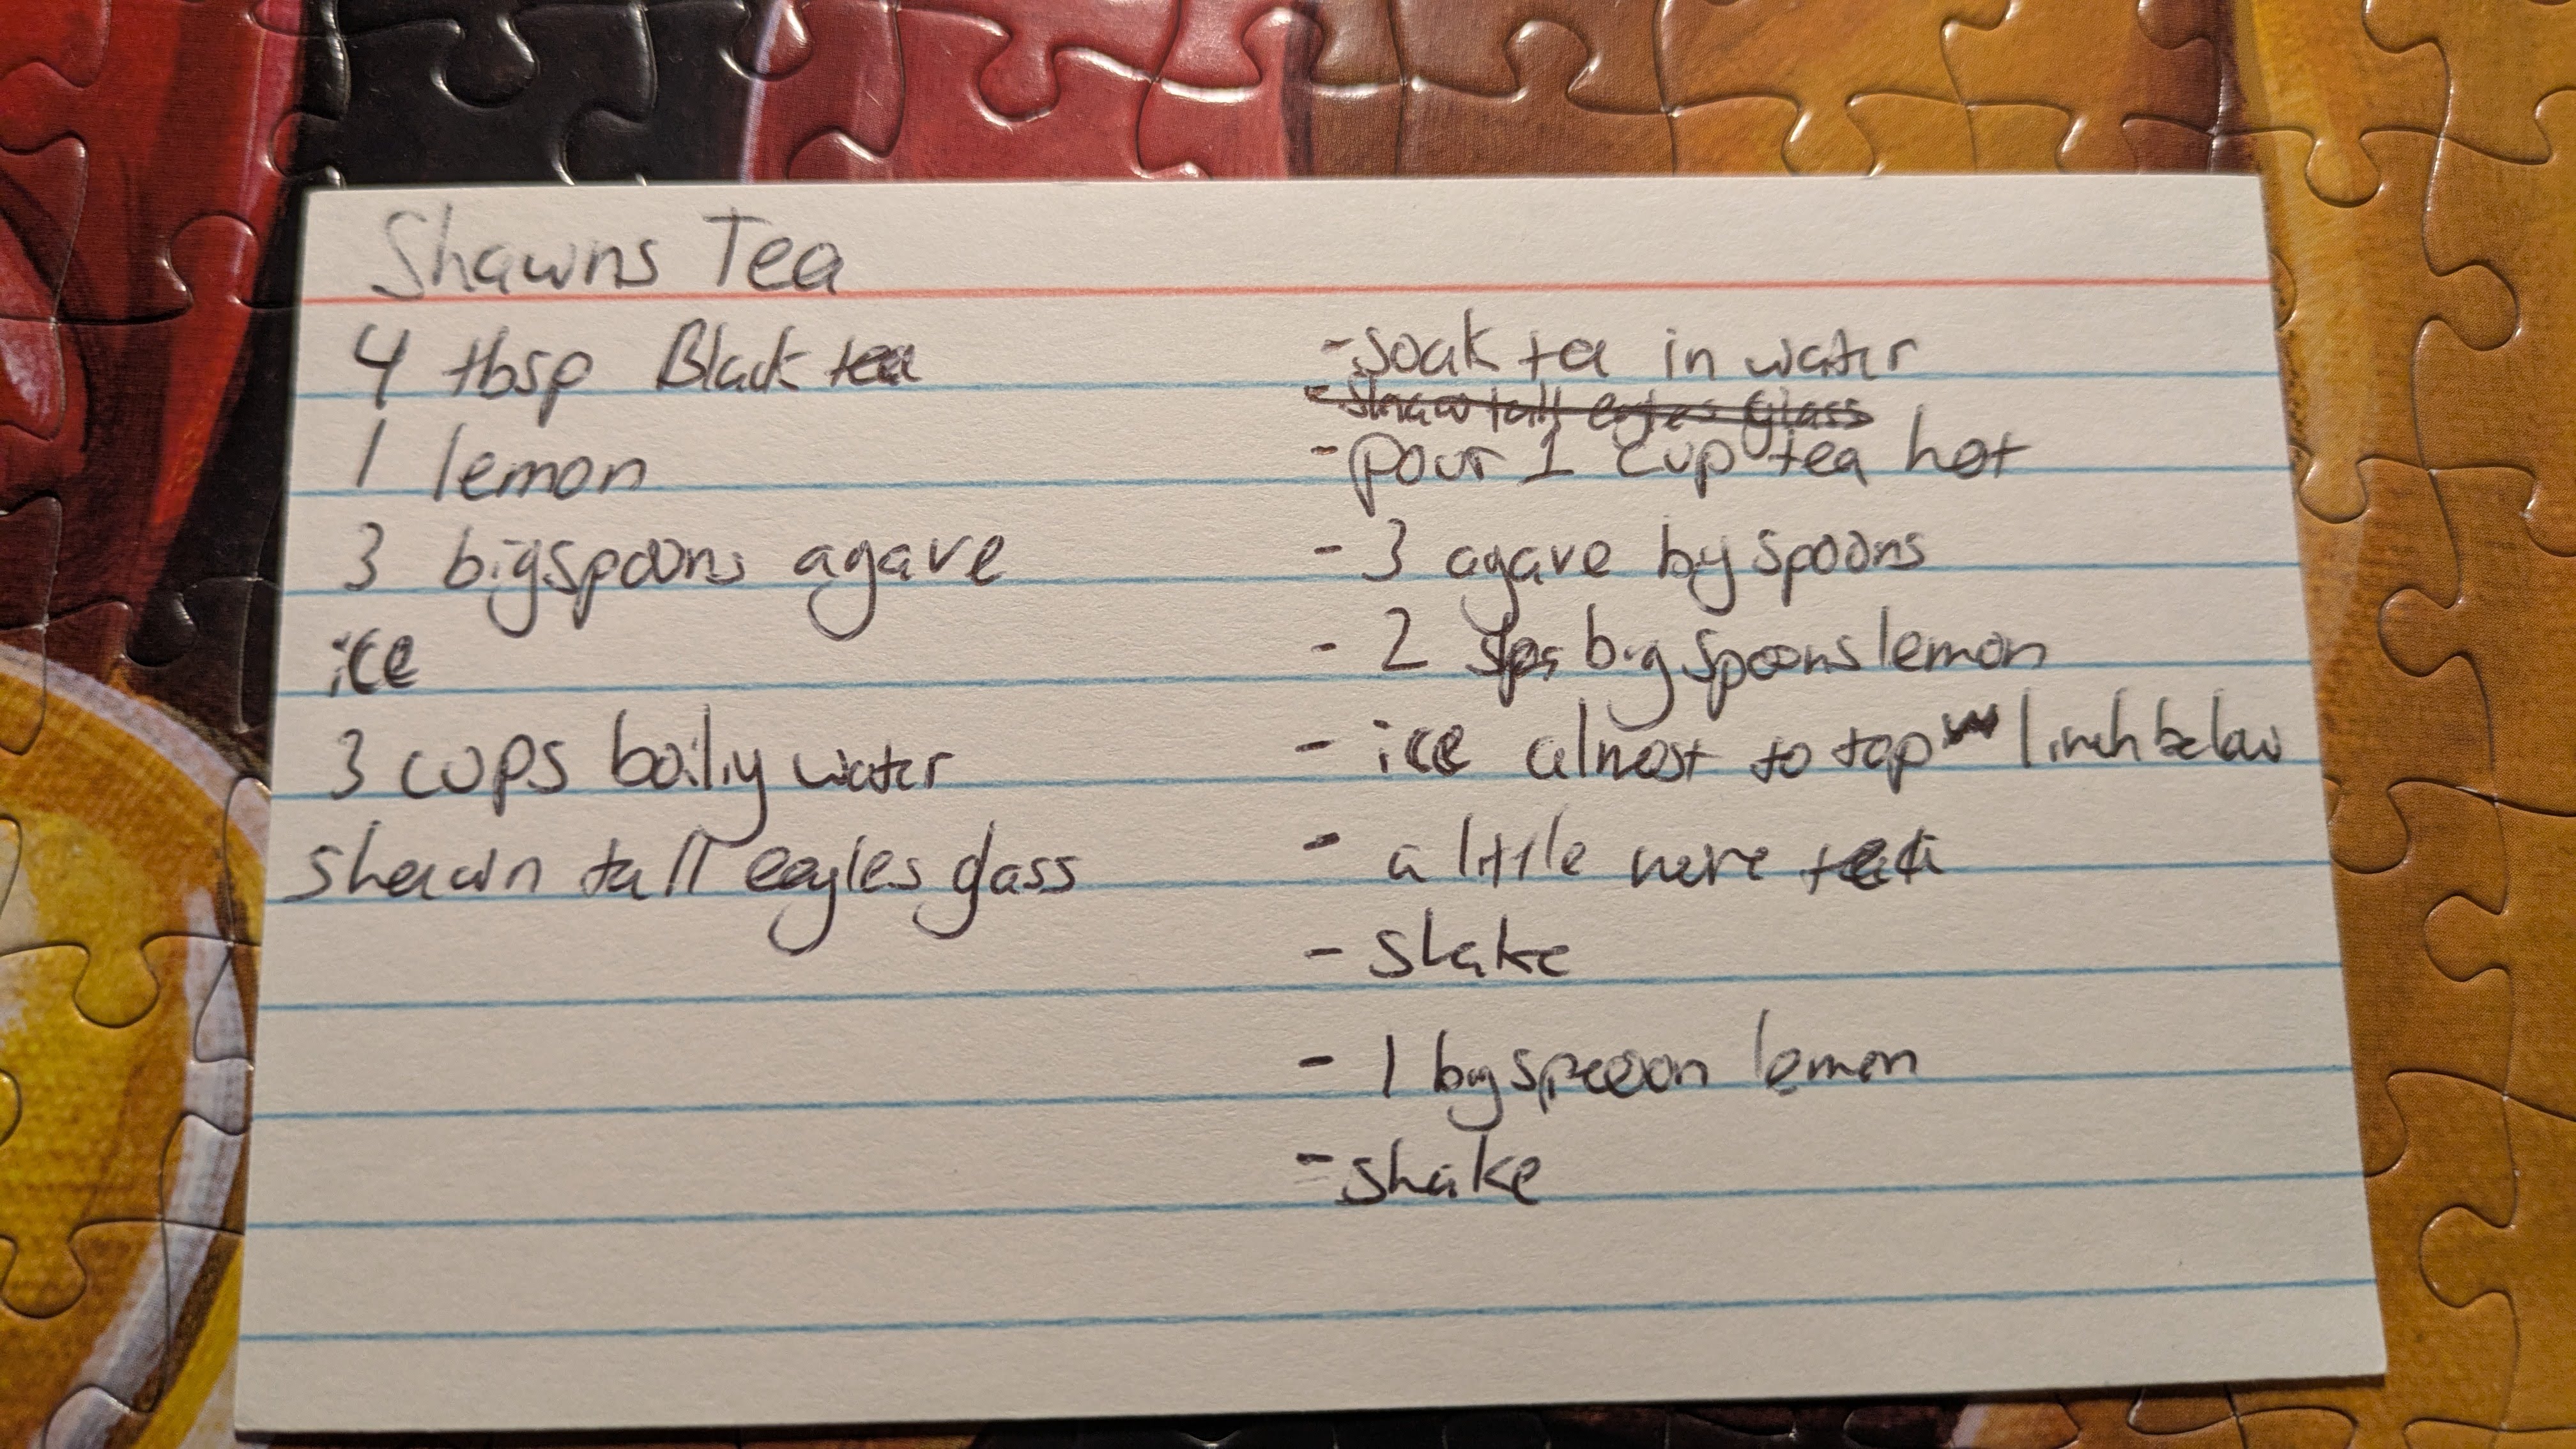 Shawns Tea
4 tbsp Black tea
1 lemon
3 big spoons agave
ice
3 cups boiliy water
shawn tall eagles glass
- soak tea in water
- shawn tall eagles glass
- pour 1 cup tea hot
- 3 agave big spoons
- 2 big spoons lemon
- ice almost to top 1 inch below
- a little more tea
- shake
- 1 big spoon lemon
- shake